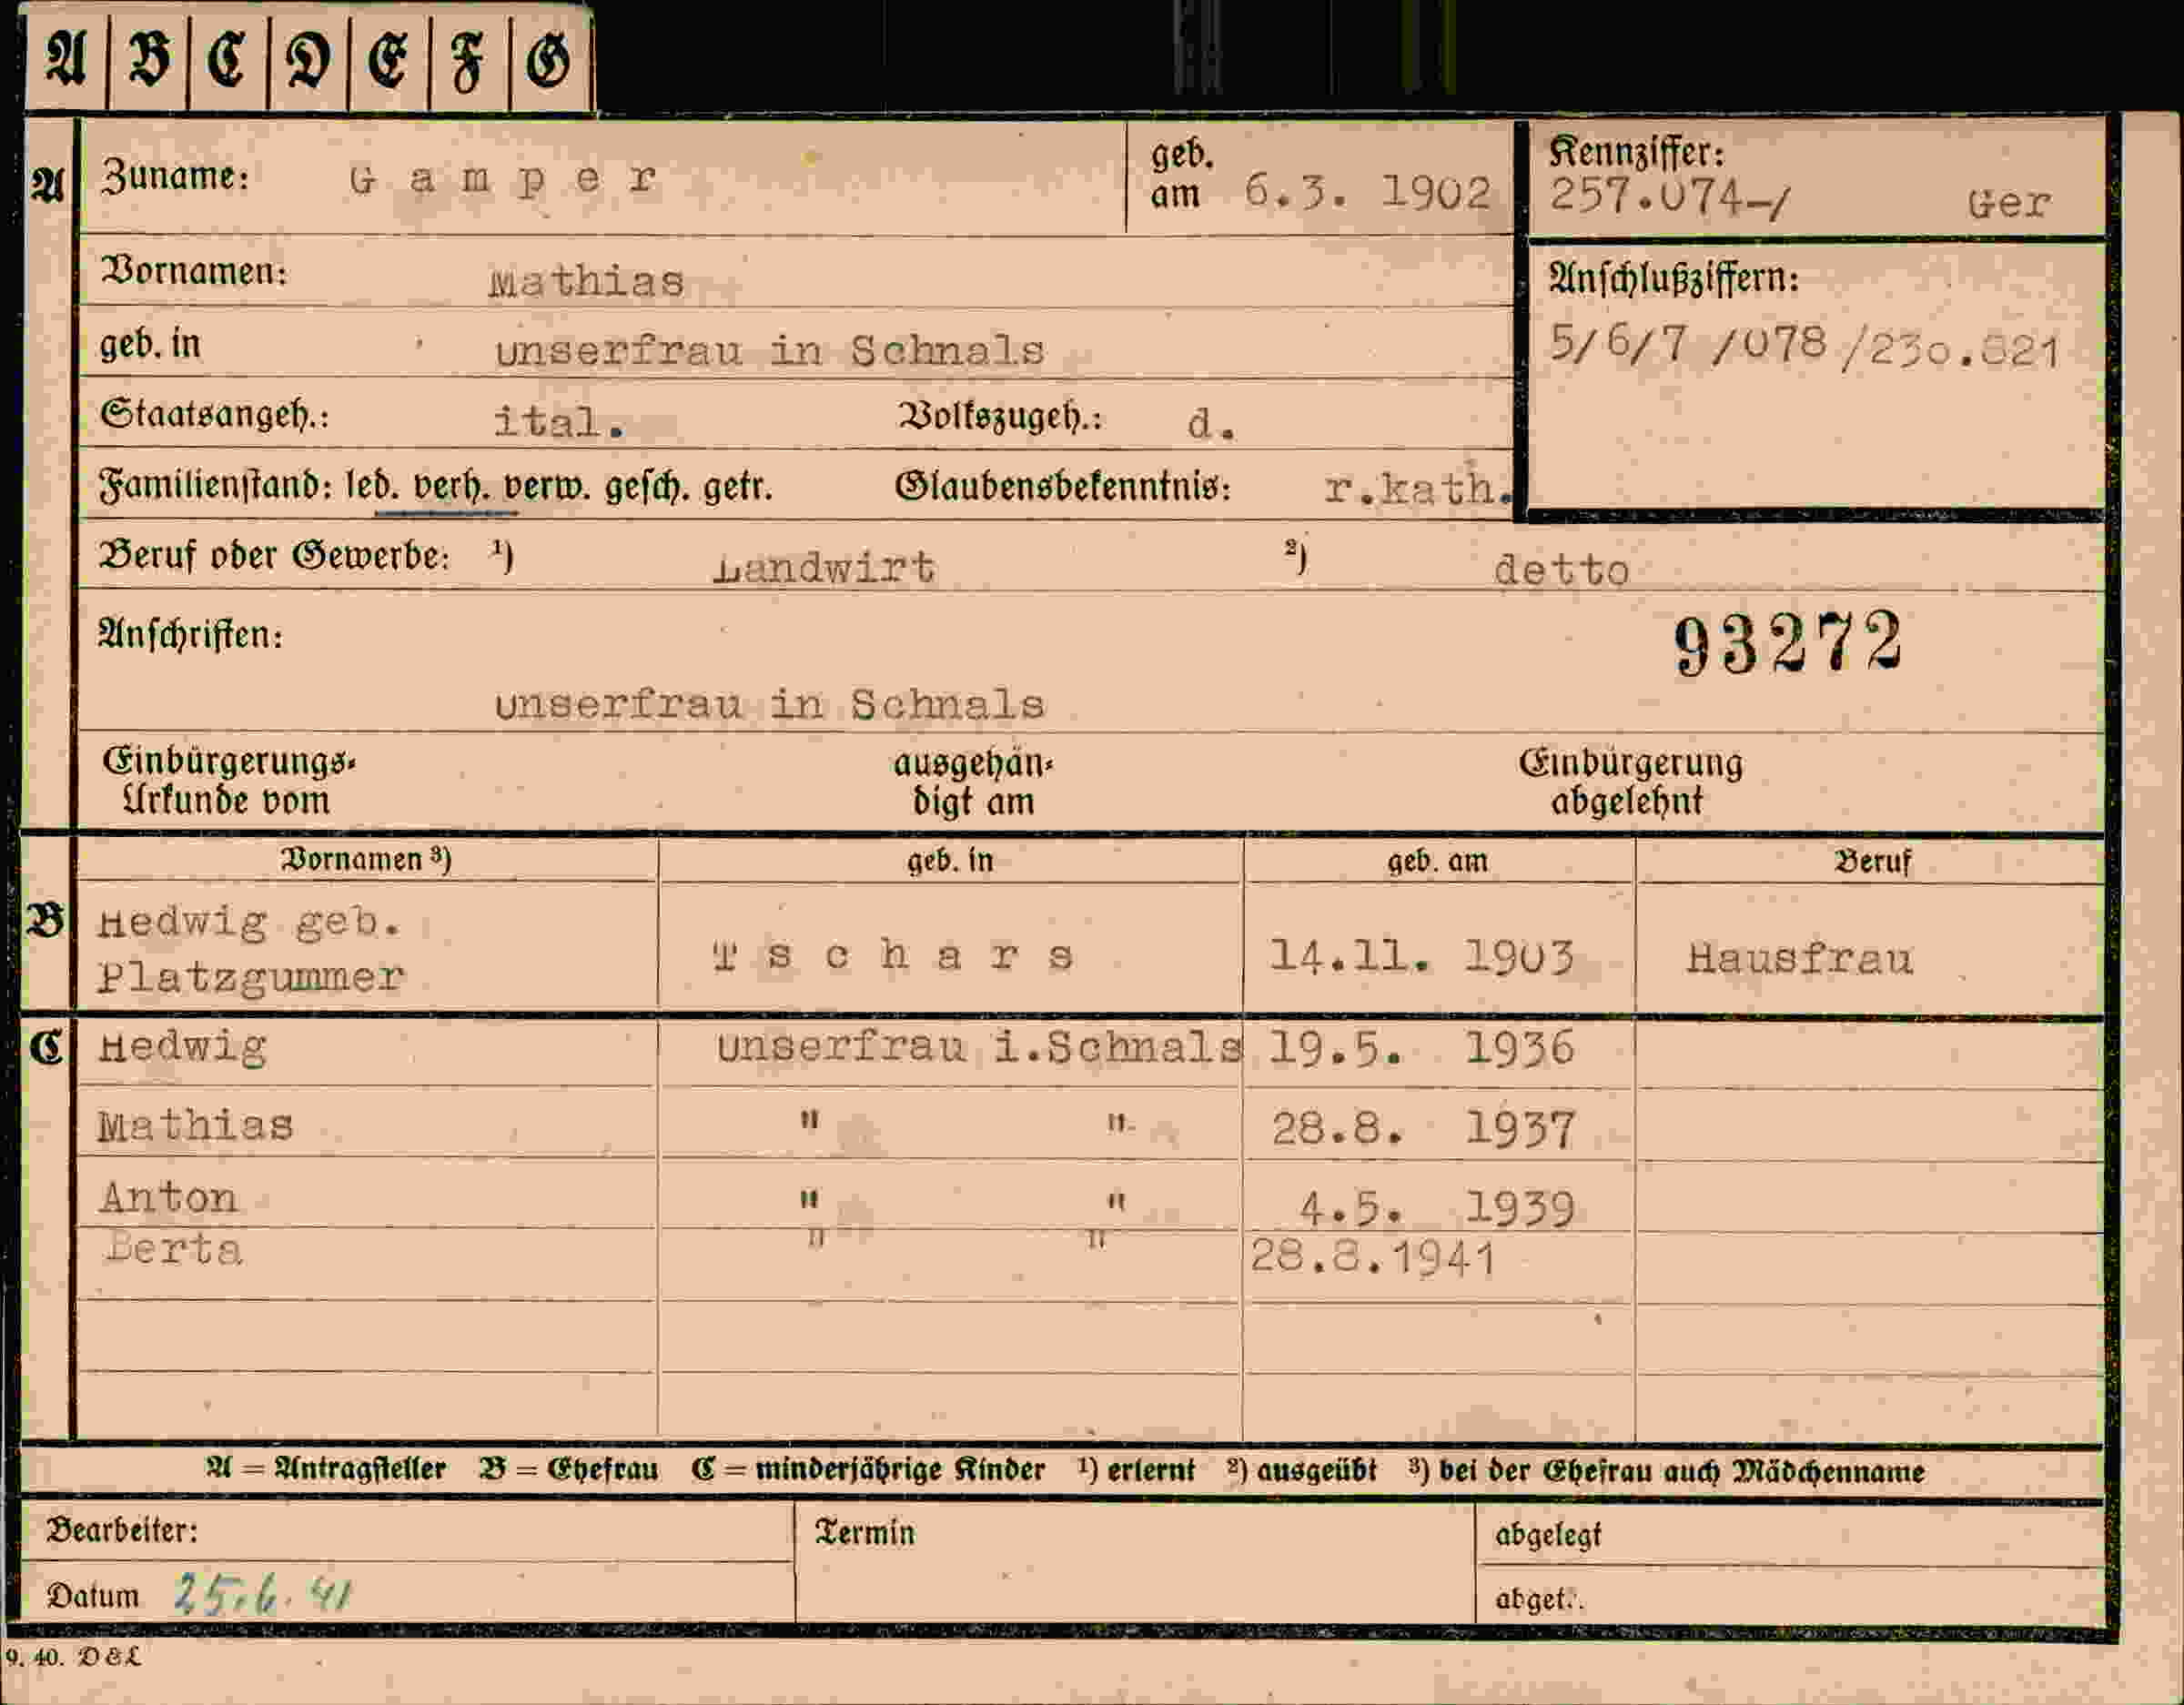 A B C D E F G
A Zuname: Gamper geb. am 6.3. 1902 Kennziffer: 257.074-/ Ger
Vornamen: Mathias Anschlußziffern:
geb. in Unserfrau in Schnals 5/6/7 /078/230.821
Staatsangeh.: ital. Volkszugeh.: d.
Familienstand: led. verh. verw. gesch. getr. Glaubensbekenntnis: r.kath.
Beruf oder Gewerbe: ¹) Landwirt ²) detto
Anschriften: 93272
Unserfrau in Schnals
Einbürgerungs-Urkunde vom ausgehändigt am Einbürgerung abgelehnt
Vornamen ³) geb. in geb. am Beruf
B Hedwig geb.
Platzgummer Tschars 14.11. 1903 Hausfrau
C Hedwig Unserfrau i.Schnals 19.5. 1936
Mathias " " 28.8. 1937
Anton " " 4.5. 1939
Berta " " 28.8.1941
A = Antragsteller B = Ehefrau C = minderjährige Kinder ¹) erlernt ²) ausgeübt ³) bei der Ehefrau auch Mädchenname
Bearbeiter: Termin abgelegt
Datum 25.6.41 abget.:
9. 40. D&L